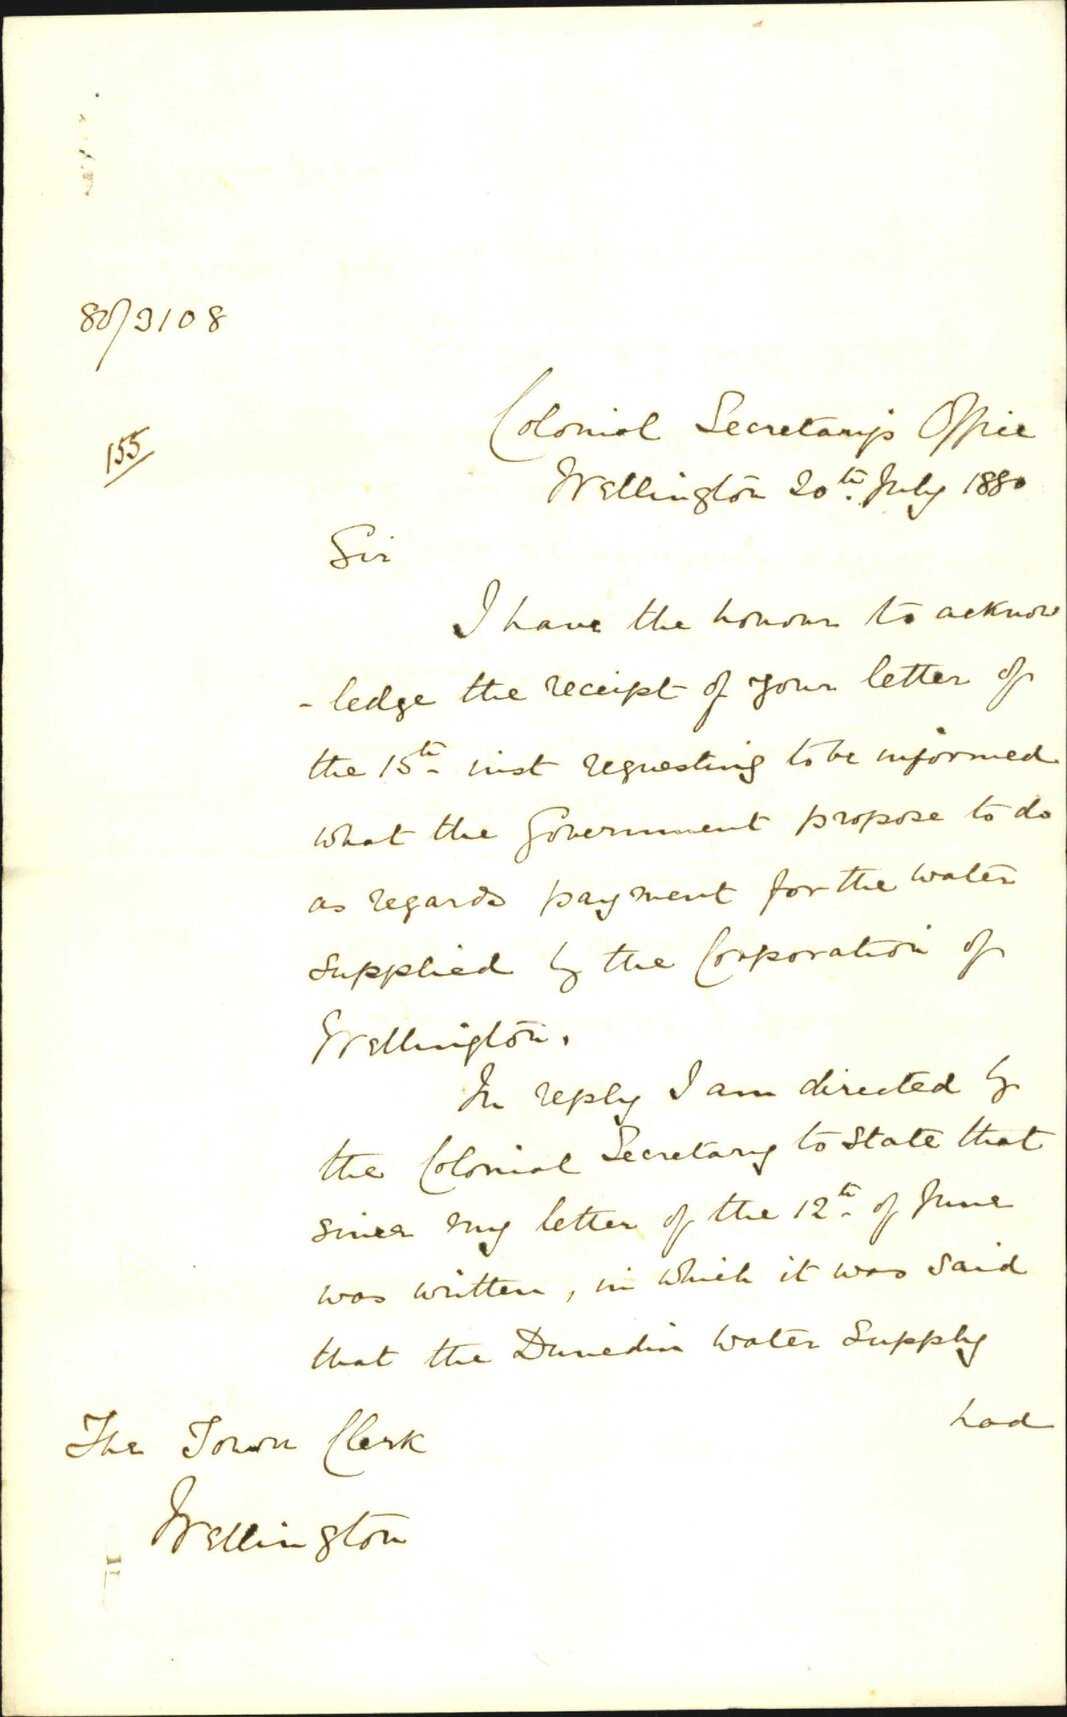 80/3108
155
Colonial Secretary's Office
Wellington 20th. July 1880
Sir
I have the honour to acknow
- ledge the receipt of your letter of
the 15th. inst requesting to be informed
what the Government propose to do
as regards payment for the water
supplied by the Corporation of
Wellington.
In reply I am directed by
the Colonial Secretary to state that
since my letter of the 12th. of June
was written, in which it was said
that the Dunedin Water Supply
had
The Town Clerk
Wellington